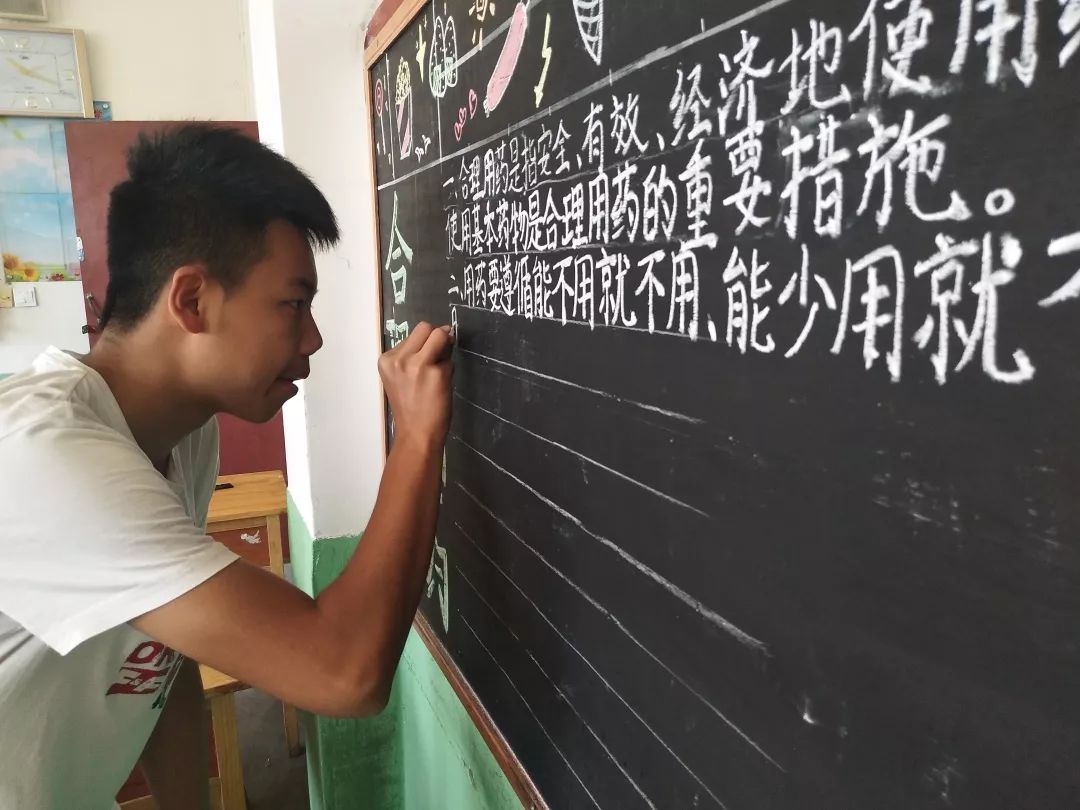 一、合理用药是指安全、有效、经济地使用
使用基本药物是合理用药的重要措施。
二、用药要遵循能不用就不用、能少用就不
合